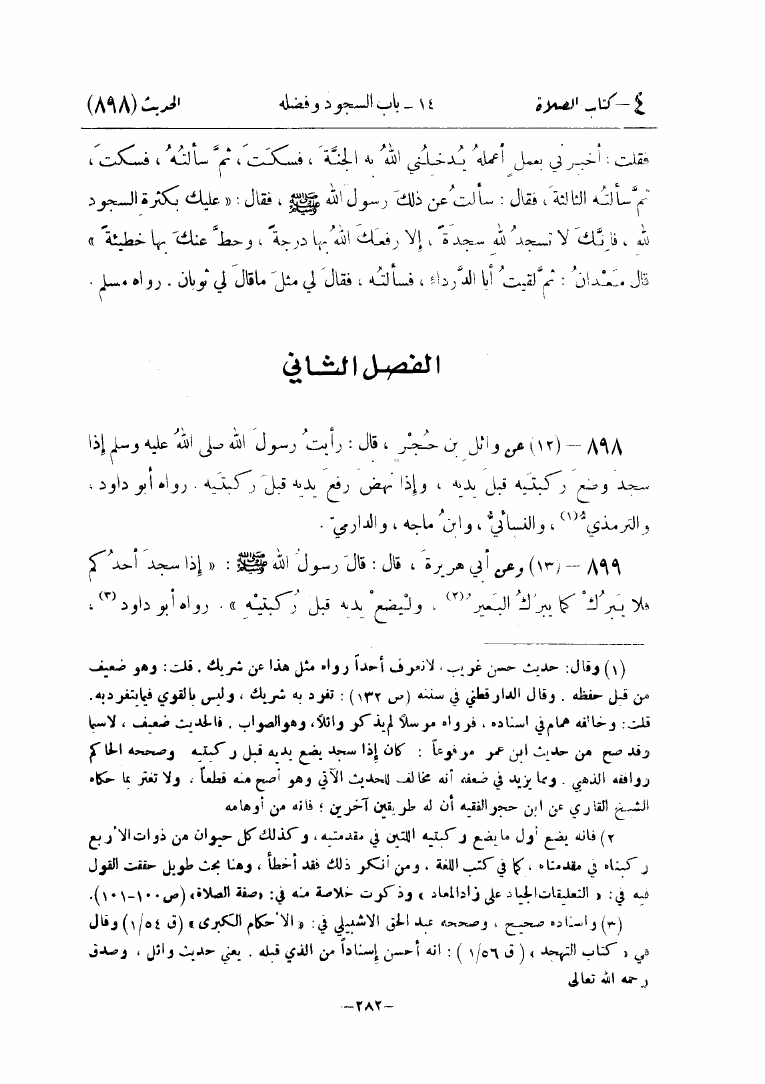 ٤ – كتاب الصلاة ١٤ – باب السجود وفضله الحديث (٨٩٨)
فقلت : أخبرني بعمل أعمله يُدخلني اللهُ به الجنَّةَ ، فسكتَ ، ثمَّ سألتُهُ ، فسكت ،
ثمَّ سألتُه الثالثةَ ، فقال : سألتُ عن ذلكَ رسول الله ﷺ ، فقال : « عليك بكثرة السجود
لله ، فإنَّكَ لا تسجدُ للهِ سجدةً ، إلا رفعكَ اللهُ بها درجةً ، وحطَّ عنكَ بها خطيئةً »
قال مَعْدانُ : ثمَّ لقيتُ أبا الدَّرداء ، فسألتُه ، فقال لي مثلَ ماقالَ لي ثوبان . رواه مسلم .
الفصل الثاني
٨٩٨ – (١٢) عن وائلِ بن حُجْرٍ ، قال : رأيتُ رسولَ الله صلى اللهُ عليه وسلم إذا
سجدَ وضعَ ركبتَيه قبلَ يديه ، وإذا نهضَ رفعَ يديه قبلَ ركبتَيه . رواه أبو داود ،
والترمذيُّ(١) ، والنسائيُّ ، وابنُ ماجه ، والدارميّ .
٨٩٩ – (١٣) وعن أبي هريرةَ ، قال : قالَ رسولُ الله ﷺ : « إذا سجدَ أحدُكم
فلا يَبرُكْ كما يبرُكُ البَعيرُ(٢) ، ولْيضعْ يديه قبلَ رُكبتَيْه » . رواه أبو داود(٣) ،
(١) وقال: حديث حسن غريب، لانعرف أحداً رواه مثل هذا عن شريك . قلت: وهو ضعيف
من قبل حفظه . وقال الدارقطني في سننه (ص ١٣٢) : تفرد به شريك ، وليس بالقوي فيمايتفردبه.
قلت: وخالفه همام في اسناده ، فرواه مرسلاً لم يذكر وائلاً، وهوالصواب . فالحديث ضعيف ، لاسيما
وقد صح من حديث ابن عمر مرفوعاً : كان إذا سجد يضع يديه قبل ركبتيه وصححه الحاكم
ووافقه الذهبي . ومما يزيد في ضعفه أنه مخالف للحديث الآتي وهو أصح منه قطعاً ، ولا تغتر بما حكاه
الشيخ القاري عن ابن حجر الفقيه أن له طريقين آخرين ؛ فانه من أوهامه
٢) فانه يضع أول مايضع ركبتيه اللتين في مقدمتيه ، وكذلك كل حيوان من ذوات الأربع
ركبتاه في مقدمتاه ، كما في كتب اللغة ، ومن أنكر ذلك فقد أخطأ ، وهنا بحث طويل حققت القول
فيه في: « التعليقات الجياد على زادالمعاد » وذكرت خلاصة منه في: «صفة الصلاة» (ص ١٠٠–١٠١).
(٣) واسناده صحيح ، وصححه عبد الحق الاشبيلي في: «الأحكام الكبرى» (ق ١/٥٤) وقال
في « كتاب التهجد » ( ق ١/٥٦ ) : انه أحسن إسناداً من الذي قبله . يعني حديث وائل ، وصدق
رحمه الله تعالى
–٢٨٢–